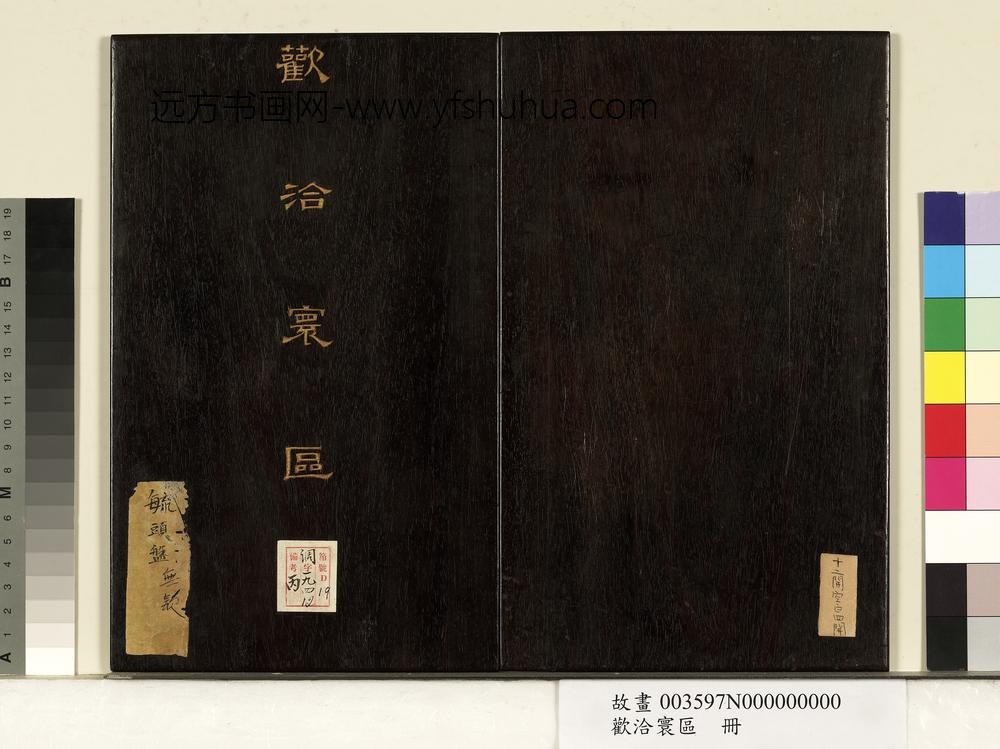 歡洽寰區
远方书画网-www.yfshuhua.com
毓
頭盤無款
箱號D 19
調字一九四
備考 丙
十二開空白四開
故畫 003597N000000000
歡洽寰區 冊
19
18
17
B
15
14
13
12
11
10
9
8
M
6
5
4
3
2
1
A